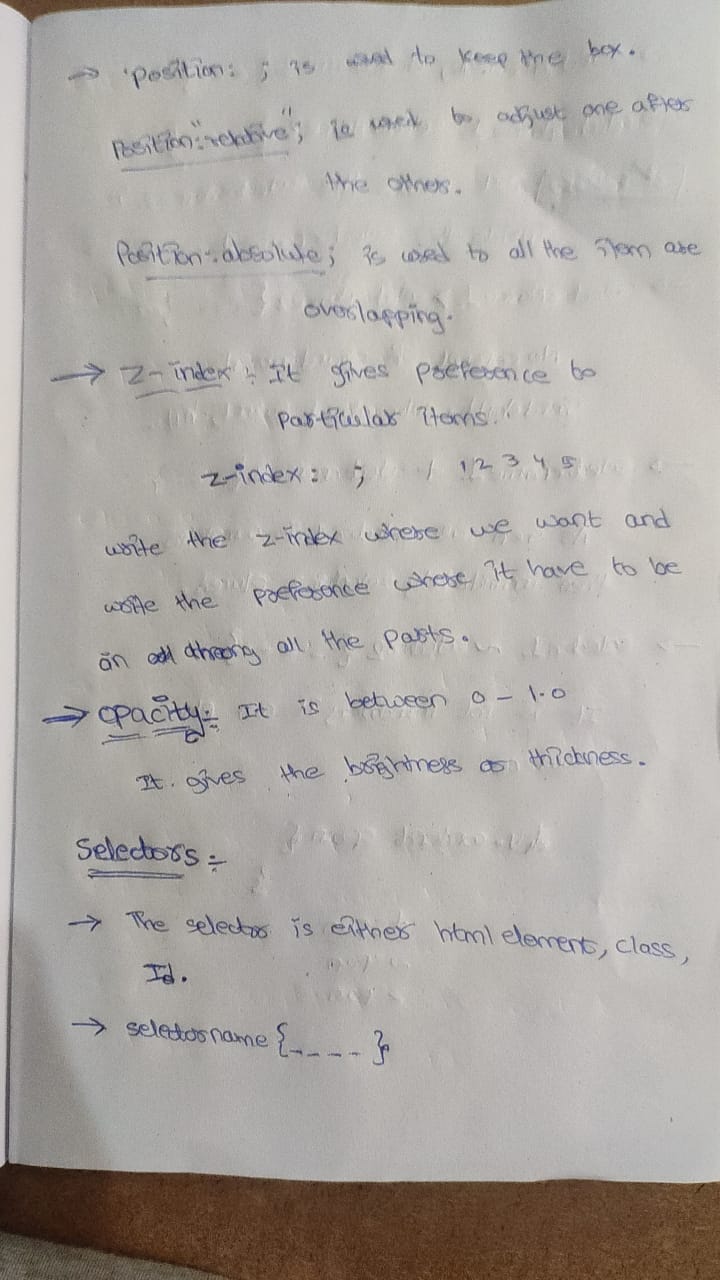 → 'position: ; is used to keep the box.
Position:"relative"; is used to adjust one after
the others.
Position:absolute; is used to all the item are
overlapping.
→ Z-index: It gives preference to
particular items.
z-index: ; 1 2 3 4 5
write the z-index where we want and
write the preference where it have to be
in all the parts.
→ opacity:- It is between 0 - 1.0
It gives the brightness or thickness.
Selectors :-
→ The selector is either html element, class,
Id.
→ selector name {_ _ _ _ }